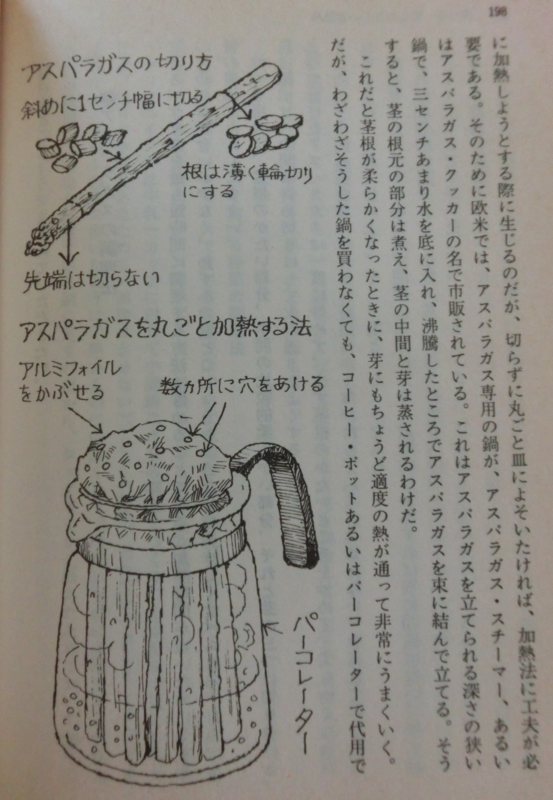 198
に加熱しようとする際に生じるのだが、切らずに丸ごと皿によそいたければ、加熱法に工夫が必
要である。そのために欧米では、アスパラガス専用の鍋が、アスパラガス・スチーマー、あるい
はアスパラガス・クッカーの名で市販されている。これはアスパラガスを立てられる深さの狭い
鍋で、三センチあまり水を底に入れ、沸騰したところでアスパラガスを束に結んで立てる。そう
すると、茎の根元の部分は煮え、茎の中間と芽は蒸されるわけだ。
これだと茎根が柔らかくなったときに、芽にもちょうど適度の熱が通って非常にうまくいく。
だが、わざわざそうした鍋を買わなくても、コーヒー・ポットあるいはパーコレーターで代用で
アスパラガスの切り方
斜めに1センチ幅に切る
根は薄く輪切り
にする
先端は切らない
アスパラガスを丸ごと加熱する法
アルミフォイル
をかぶせる
数ヵ所に穴をあける
パーコレーター